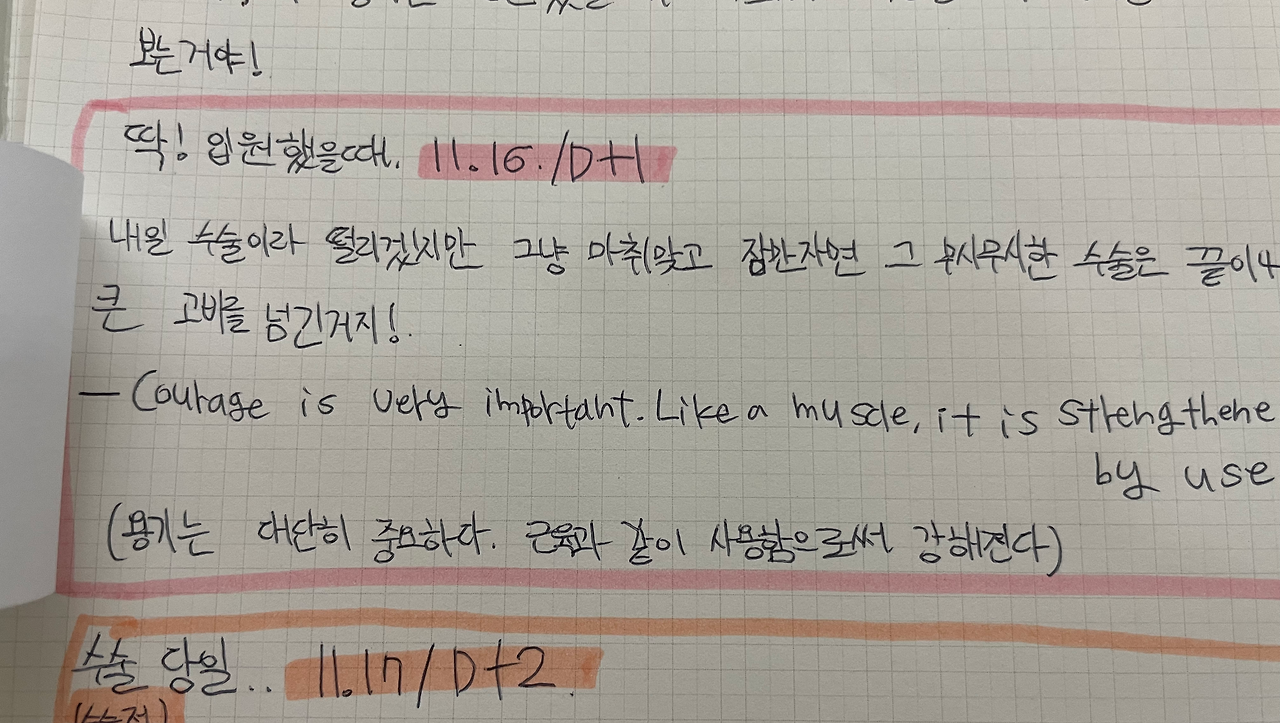 보는거야!
딱! 입원했을때. 11.16./D+1
내일 수술이라 떨리겠지만 그냥 마취맞고 잠깐자면 그 무시무시한 수술은 끝이
큰 고비를 넘긴거지!
— Courage is very important. Like a muscle, it is strengthene
by use
(용기는 대단히 중요하다. 근육과 같이 사용함으로써 강해진다)
수술 당일.. 11.17/D+2
(수술전)